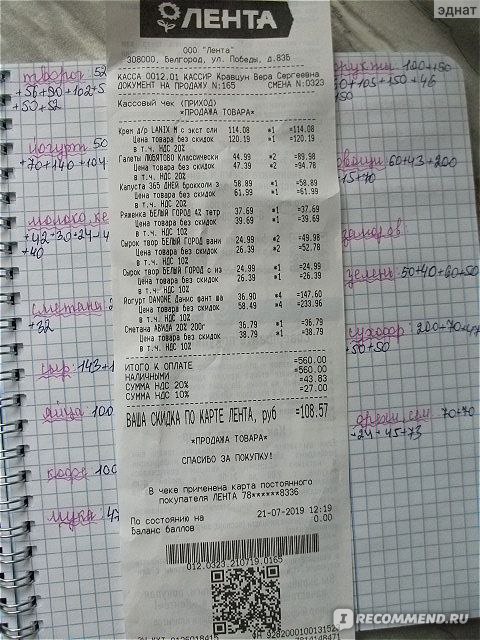 эднат
ЛЕНТА
ООО "Лента"
308000, Белгород, ул. Победы, д.83Б
КАССА 0012.01 КАССИР Кравцун Вера Сергеевна
ДОКУМЕНТ НА ПРОДАЖУ N:165 СМЕНА N:0323
Кассовый чек (ПРИХОД)
*ПРОДАЖА ТОВАРА*
Крем д/р LANIX М с экст оли 114.08 *1 =114.08
Цена товара без скидок 120.19 *1 =120.19
в т.ч. НДС 20%
Галеты ЛЮБЯТОВО Классически 44.99 *2 =89.98
Цена товара без скидок 47.39 *2 =94.78
в т.ч. НДС 20%
Капуста 365 ДНЕЙ брокколи з 58.89 *1 =58.89
Цена товара без скидок 61.99 *1 =61.99
в т.ч. НДС 20%
Ряженка БЕЛЫЙ ГОРОД 42 тетр 37.69 *1 =37.69
Цена товара без скидок 39.69 *1 =39.69
в т.ч. НДС 10%
Сырок твор БЕЛЫЙ ГОРОД вани 24.99 *2 =49.98
Цена товара без скидок 26.39 *2 =52.78
в т.ч. НДС 10%
Сырок твор БЕЛЫЙ ГОРОД с из 24.99 *1 =24.99
Цена товара без скидок 26.39 *1 =26.39
в т.ч. НДС 10%
Йогурт DANONE Данис фант ша 36.90 *4 =147.60
Цена товара без скидок 58.49 *4 =233.96
в т.ч. НДС 10%
Сметана АВИДА 20% 200г 36.79 *1 =36.79
Цена товара без скидок 38.79 *1 =38.79
в т.ч. НДС 10%
ИТОГО К ОПЛАТЕ =560.00
НАЛИЧНЫМИ =560.00
СУММА НДС 20% =43.83
СУММА НДС 10% =27.00
ВАША СКИДКА ПО КАРТЕ ЛЕНТА, руб =108.57
*ПРОДАЖА ТОВАРА*
СПАСИБО ЗА ПОКУПКУ!
В чеке применена карта постоянного
покупателя ЛЕНТА 78******8336
По состоянию на 21-07-2019 12:19
Баланс баллов 0.00
012.0323.210719.0165
творог 52
+56+90+102+5
+50+52
йогурт 50
+70+140+104
молоко, ке
+40
сметана
+32
сыр 143+1
яйца 100
кофе 100
мука 47
100+150
50+105+150+46
150
60+43+200
15+70
зелень 50+40+60+50
200+70+47
+50+50
70+70
+24+45+73
I RECOMMEND.RU